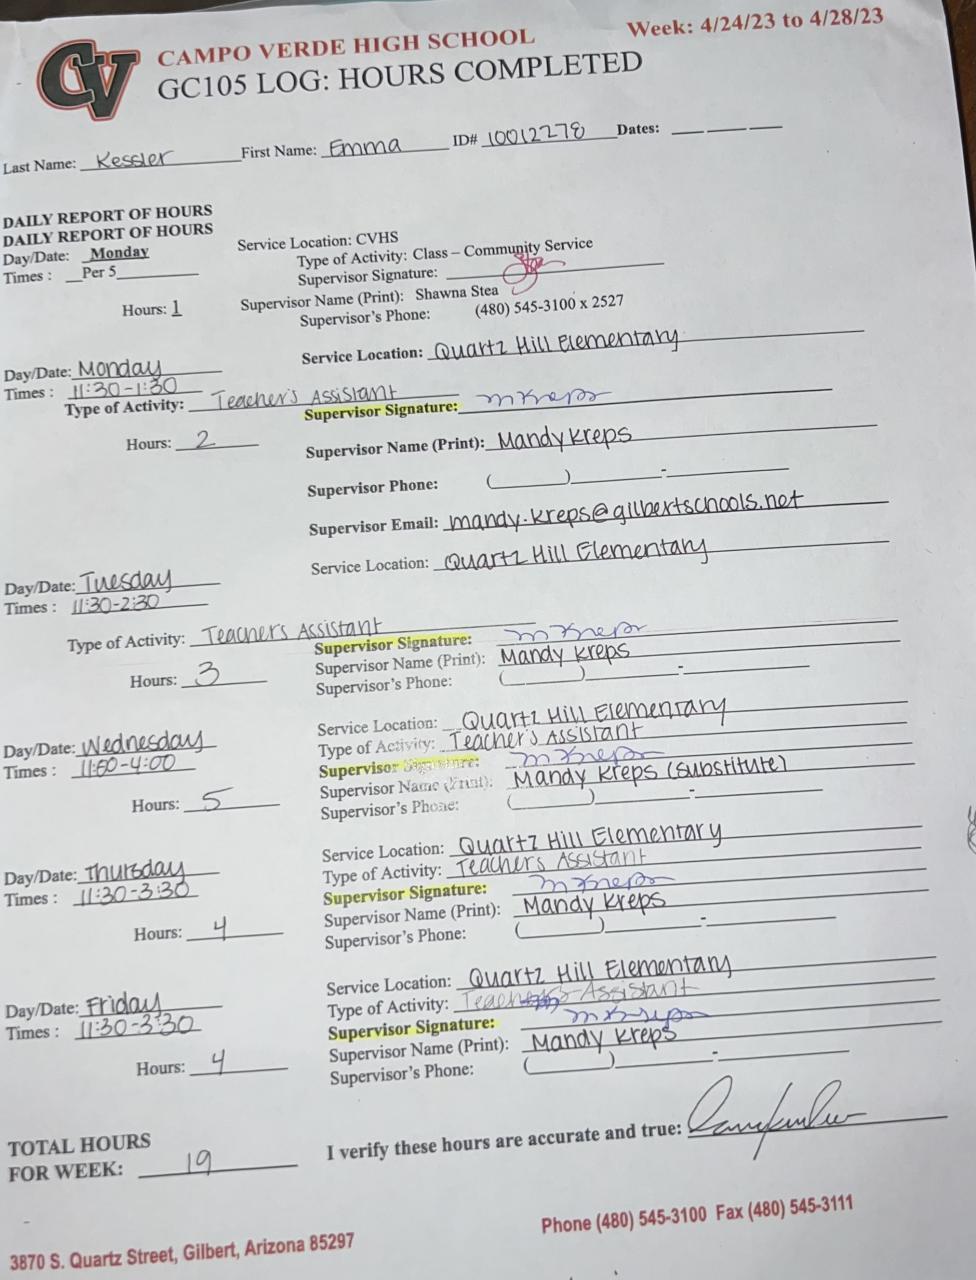 CV
Week: 4/24/23 to 4/28/23
CAMPO VERDE HIGH SCHOOL
GC105 LOG: HOURS COMPLETED
Last Name: Kessler First Name: Emma ID# 10012278 Dates:
DAILY REPORT OF HOURS
DAILY REPORT OF HOURS
Day/Date: Monday
Times : Per 5
Hours: 1
Service Location: CVHS
Type of Activity: Class – Community Service
Supervisor Signature:
Supervisor Name (Print): Shawna Stea
Supervisor's Phone: (480) 545-3100 x 2527
Day/Date: Monday Service Location: Quartz Hill Elementary
Times : 11:30-1:30
Type of Activity: Teacher's Assistant Supervisor Signature: m Kreps
Hours: 2 Supervisor Name (Print): Mandy Kreps
Supervisor Phone: ( ) -
Supervisor Email: mandy.kreps@gilbertschools.net
Day/Date: Tuesday Service Location: Quartz Hill Elementary
Times : 11:30-2:30
Type of Activity: Teachers Assistant Supervisor Signature: m Kreps
Hours: 3 Supervisor Name (Print): Mandy Kreps
Supervisor's Phone: ( ) -
Day/Date: Wednesday Service Location: Quartz Hill Elementary
Times : 4:00 Type of Activity: Teacher's Assistant
Supervisor Signature: m Kreps
Hours: 5 Supervisor Name (Print): Mandy Kreps (substitute)
Supervisor's Phone: ( ) -
Day/Date: Thursday Service Location: Quartz Hill Elementary
Times : 11:30-3:30 Type of Activity: Teachers Assistant
Supervisor Signature: m Kreps
Hours: 4 Supervisor Name (Print): Mandy Kreps
Supervisor's Phone: ( ) -
Day/Date: Friday Service Location: Quartz Hill Elementary
Times : 11:30-3:30 Type of Activity: Teachers Assistant
Supervisor Signature: m Kreps
Hours: 4 Supervisor Name (Print): Mandy Kreps
Supervisor's Phone: ( ) -
TOTAL HOURS
FOR WEEK: 19 I verify these hours are accurate and true:
Phone (480) 545-3100 Fax (480) 545-3111
3870 S. Quartz Street, Gilbert, Arizona 85297